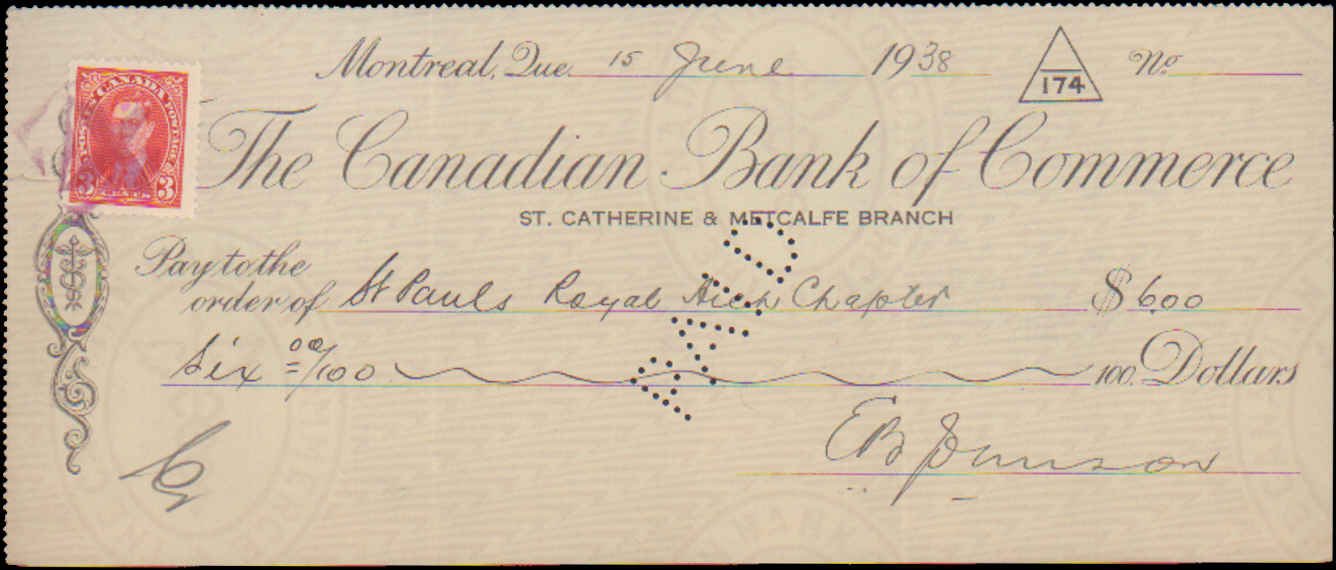 POSTES CANADA POSTAGE
3 3
Montreal, Que. 15 June 1938 174 No.
The Canadian Bank of Commerce
ST. CATHERINE & METCALFE BRANCH
Pay to the
order of St Pauls Royal Arch Chapter $ 6.00
Six 00/100 100 Dollars
PAID